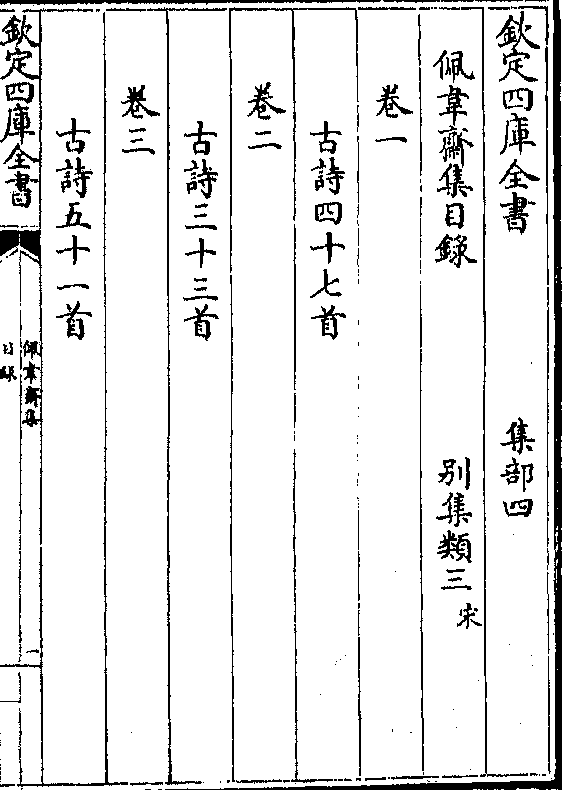 欽定四庫全書　　　集部四
佩韋齋集目錄　　　別集類三宋
卷一
古詩四十七首
卷二
古詩三十三首
卷三
古詩五十一首
欽定四庫全書
佩韋齋集
目錄
一